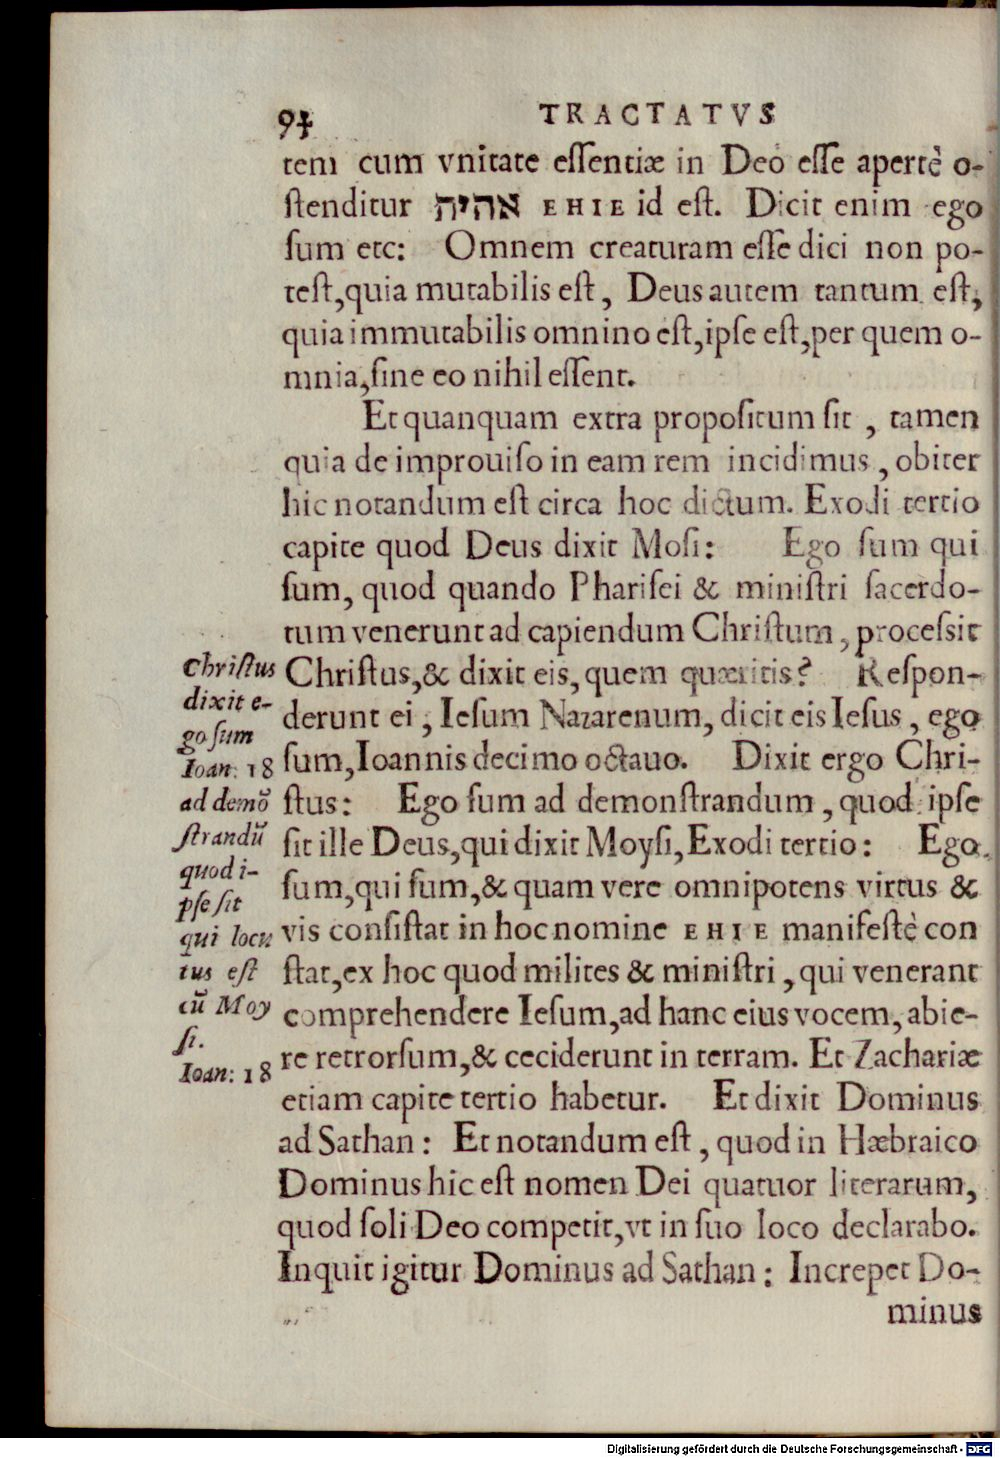 94
TRACTATVS
tem cum vnitate eſſentiæ in Deo eſſe apertè o-
ſtenditur אהיה EHIE id eſt. Dicit enim ego
ſum etc: Omnem creaturam eſſe dici non po-
teſt,quia mutabilis eſt, Deus autem tantum eſt,
quia immutabilis omnino eſt,ipſe eſt,per quem o-
mnia,ſine eo nihil eſſent.
Et quanquam extra propoſitum ſit, tamen
quia de improuiſo in eam rem incidimus, obiter
hic notandum eſt circa hoc dictum. Exodi tertio
capite quod Deus dixit Moſi: Ego ſum qui
ſum, quod quando Phariſei & miniſtri ſacerdo-
tum venerunt ad capiendum Chriſtum, proceſsit
Chriſtus,& dixit eis, quem quæritis? Reſpon-
derunt ei, Ieſum Nazarenum, dicit eis Ieſus, ego
ſum,Ioannis decimo octauo. Dixit ergo Chri-
ſtus: Ego ſum ad demonſtrandum, quod ipſe
ſit ille Deus,qui dixit Moyſi,Exodi tertio: Ego
ſum,qui ſum,& quam vere omnipotens virtus &
vis conſiſtat in hoc nomine EHIE manifeſtè con
ſtat,ex hoc quod milites & miniſtri, qui venerant
comprehendere Ieſum,ad hanc eius vocem, abie-
re retrorſum,& ceciderunt in terram. Et Zachariæ
etiam capite tertio habetur. Et dixit Dominus
ad Sathan: Et notandum eſt, quod in Hæbraico
Dominus hic eſt nomen Dei quatuor literarum,
quod ſoli Deo competit,vt in ſuo loco declarabo.
Inquit igitur Dominus ad Sathan: Increpet Do-
minus
Chriſtus
dixit e-
go ſum
Ioan: 18
ad demõ
ſtrandũ
quod i-
pſe ſit
qui locu
tus eſt
cũ Moy
ſi.
Ioan: 18
Digitalisierung gefördert durch die Deutsche Forschungsgemeinschaft - DFG